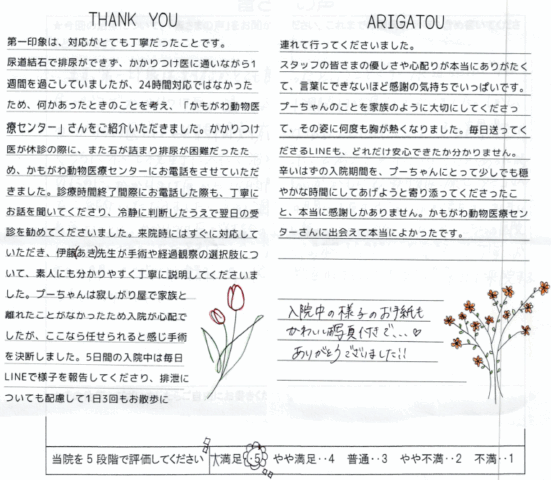 THANK YOU
第一印象は、対応がとても丁寧だったことです。
尿道結石で排尿ができず、かかりつけ医に通いながら1
週間を過ごしていましたが、24時間対応ではなかった
ため、何かあったときのことを考え、「かもがわ動物医
療センター」さんをご紹介いただきました。かかりつけ
医が休診の際に、また石が詰まり排尿が困難だったた
め、かもがわ動物医療センターにお電話をさせていただ
きました。診療時間終了間際にお電話した際も、丁寧に
お話を聞いてくださり、冷静に判断したうえで翌日の受
診を勧めてくださいました。来院時にはすぐに対応して
いただき、伊藤(あき)先生が手術や経過観察の選択肢につ
いて、素人にも分かりやすく丁寧に説明してくださいま
した。プーちゃんは寂しがり屋で家族と
離れたことがなかったため入院が心配で
したが、ここなら任せられると感じ手術
を決断しました。5日間の入院中は毎日
LINEで様子を報告してくださり、排泄に
ついても配慮して1日3回もお散歩に
ARIGATOU
連れて行ってくださいました。
スタッフの皆さまの優しさや心配りが本当にありがたく
て、言葉にできないほど感謝の気持ちでいっぱいです。
プーちゃんのことを家族のように大切にしてくださっ
て、その姿に何度も胸が熱くなりました。毎日送ってく
ださるLINEも、どれだけ安心できたか分かりません。
辛いはずの入院期間を、プーちゃんにとって少しでも穏
やかな時間にしてあげようと寄り添ってくださったこ
と、本当に感謝しかありません。かもがわ動物医療セン
ターさんに出会えて本当によかったです。
入院中の様子のお手紙も
かわいい写真付きで...♡
ありがとうございました!!
当院を5段階で評価してください
大満足‥5 やや満足‥4 普通‥3 やや不満‥2 不満‥1